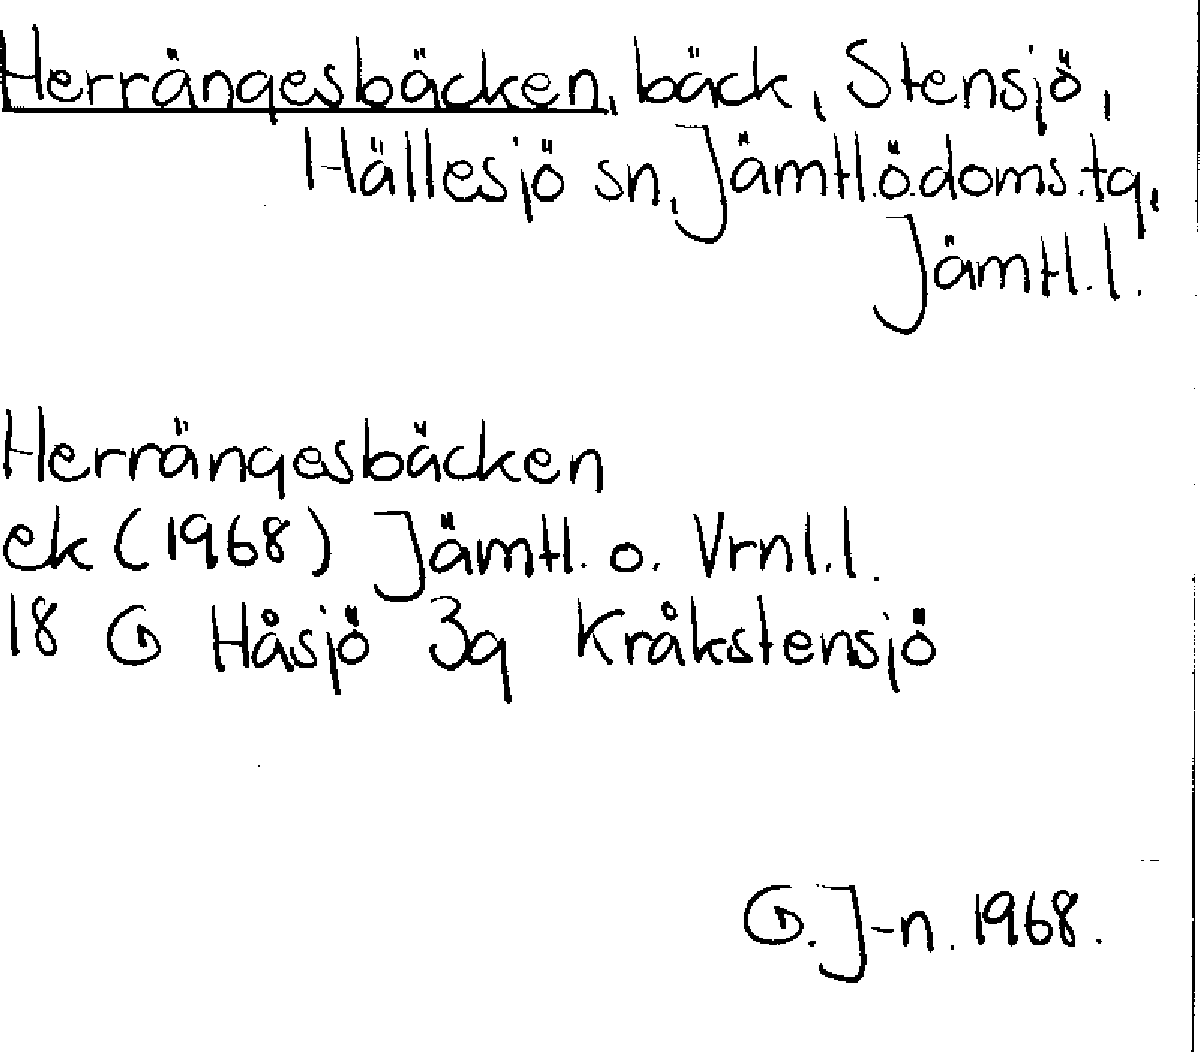 Herrängesbäcken, bäck, Stensjö,
Hällesjö sn, Jämtl.ö.doms.tg,
Jämtl.l.
Herrängesbäcken
ek (1968) Jämtl. o. Vrnl.l.
18 G Håsjö 3g Kråkstensjö
G. J-n. 1968.